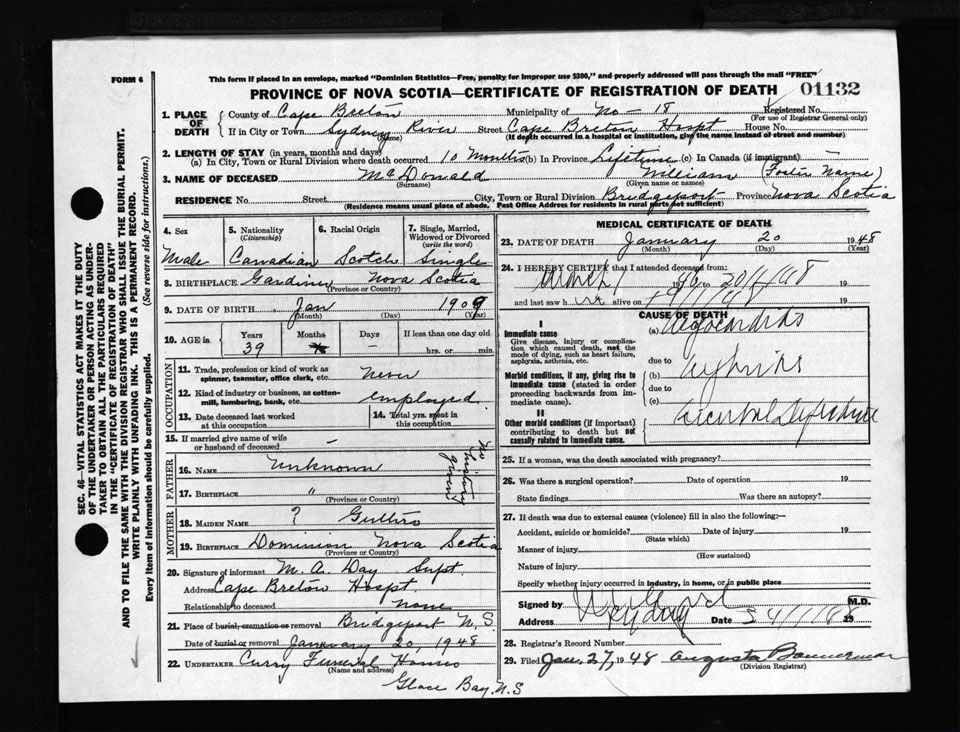 FORM 6
This form if placed in an envelope, marked "Dominion Statistics—Free, penalty for improper use $300," and properly addressed will pass through the mail "FREE"
PROVINCE OF NOVA SCOTIA—CERTIFICATE OF REGISTRATION OF DEATH 01132
1. PLACE OF DEATH { County of Cape Breton Municipality of No - 18 Registered No.
(For use of Registrar General only)
If in City or Town Sydney River Street Cape Breton Hospt House No.
(Name) (If death occurred in a hospital or institution, give the name instead of street and number)
2. LENGTH OF STAY (in years, months and days)
(a) In City, Town or Rural Division where death occurred 10 Months (b) In Province Lifetime (c) In Canada (if immigrant) —
3. NAME OF DECEASED McDonald William (Foster Name)
(Surname) (Given name or names)
RESIDENCE No. Street City, Town or Rural Division Bridgeport Province Nova Scotia
(Residence means usual place of abode. Post Office Address for residents in rural parts not sufficient)
4. Sex 5. Nationality (Citizenship) 6. Racial Origin 7. Single, Married, Widowed or Divorced (write the word)
Male Canadian Scotch Single
8. BIRTHPLACE Gardiner Nova Scotia
(Province or Country)
9. DATE OF BIRTH Jan 1909
(Month) (Day) (Year)
10. AGE in Years Months Days If less than one day old
39 — hrs. or min.
OCCUPATION
11. Trade, profession or kind of work as spinner, teamster, office clerk, etc. Never
12. Kind of industry or business, as cotton-mill, lumbering, bank, etc. employed
13. Date deceased last worked at this occupation 14. Total yrs. spent in this occupation
15. If married give name of wife or husband of deceased —
FATHER
16. NAME Unknown
17. BIRTHPLACE "
(Province or Country)
No history given
MOTHER
18. MAIDEN NAME ?
19. BIRTHPLACE Dominion Nova Scotia
(Province or Country)
20. Signature of informant M. A. Day Supt.
Address Cape Breton Hospt.
Relationship to deceased none
21. Place of burial, cremation or removal Bridgeport N.S.
Date of burial or removal January 20, 1948
22. UNDERTAKER Curry Funeral Home
(Name and address)
Glace Bay. N.S
MEDICAL CERTIFICATE OF DEATH
23. DATE OF DEATH January 20 1948
(Month) (Day) (Year)
24. I HEREBY CERTIFY that I attended deceased from:
19 to 20/1/48 19
and last saw h alive on 19
CAUSE OF DEATH
I
Immediate cause
Give disease, injury or complication which caused death, not the mode of dying, such as heart failure, asphyxia, asthenia, etc.
(a) Myocarditis
due to
Morbid conditions, if any, giving rise to immediate cause (stated in order proceeding backwards from immediate cause).
(b) Nephritis
due to
(c)
II
Other morbid conditions (if important) contributing to death but not causally related to immediate cause.
25. If a woman, was the death associated with pregnancy?
26. Was there a surgical operation? Date of operation 19
State findings Was there an autopsy?
27. If death was due to external causes (violence) fill in also the following:—
Accident, suicide or homicide? Date of injury 19
(State which)
Manner of injury
(How sustained)
Nature of injury
Specify whether injury occurred in industry, in home, or in public place
Signed by M.D.
Address Sydney Date 19
28. Registrar's Record Number
29. Filed Jan. 27, 1948 Augusta Bannerman
(Division Registrar)
SEC. 46—VITAL STATISTICS ACT MAKES IT THE DUTY
OF THE UNDERTAKER OR PERSON ACTING AS UNDER-
TAKER TO OBTAIN ALL THE PARTICULARS REQUIRED
IN THE "CERTIFICATE OF REGISTRATION OF DEATH"
AND TO FILE THE SAME WITH THE DIVISION REGISTRAR WHO SHALL ISSUE THE BURIAL PERMIT.
WRITE PLAINLY WITH UNFADING INK. THIS IS A PERMANENT RECORD.
Every item of information should be carefully supplied. (See reverse side for instructions.)